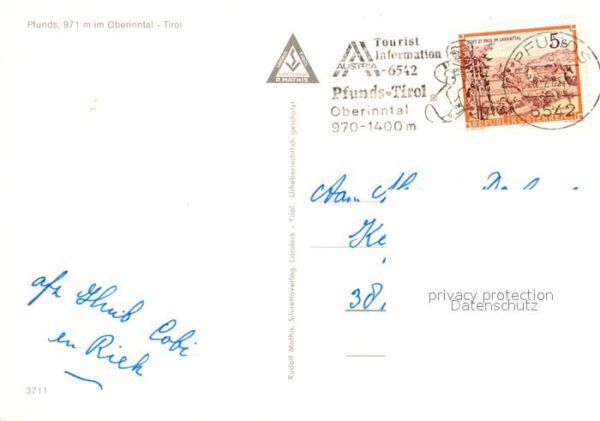 Pfunds, 971 m im Oberinntal - Tirol
R. MATHIS
AUSTRIA
Tourist
Information
-6542
Pfunds-Tirol
Oberinntal
970-1400 m
5s
STIFT ST. PAUL IM LAVANTTAL
REPUBLIK ÖSTERREICH
PFUNDS
6542
Rudolf Mathis, Silvrettaverlag, Landeck - Tirol. Urheberrechtlich geschützt
Aan
38
privacy protection
Datenschutz
afz Huib Cobi
en Riek
3711